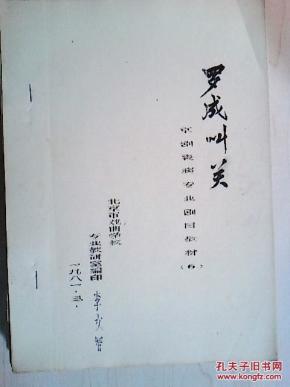 罗成叫关
京剧表演专业剧目教材
(6)
北京市戏曲学校
专业教研室编印
一九八一.3.
孔夫子旧书网